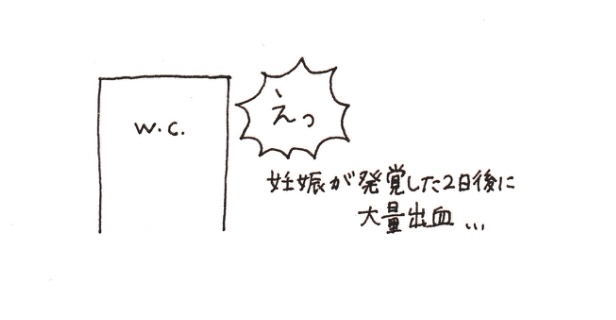 w.c.
えっ
妊娠が発覚した2日後に
大量出血...